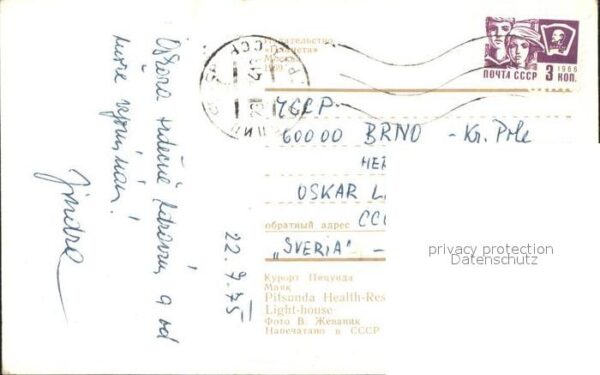 Издательство
„Планета"
Москва
1966
ПОЧТА СССР
3 КОП.
ЧССР
60000 BRNO - Kr. Pole
HER
OSKAR L
обратный адрес
СССР
„SVERIA" -
Курорт Пицунда
Маяк
Pitsunda Health-Res
Light-house
Фото В. Жеваник
Напечатано в СССР
22.9.75
srdečně zdraví
a od
moře vzpomíná!
Jindra
privacy protection
Datenschutz